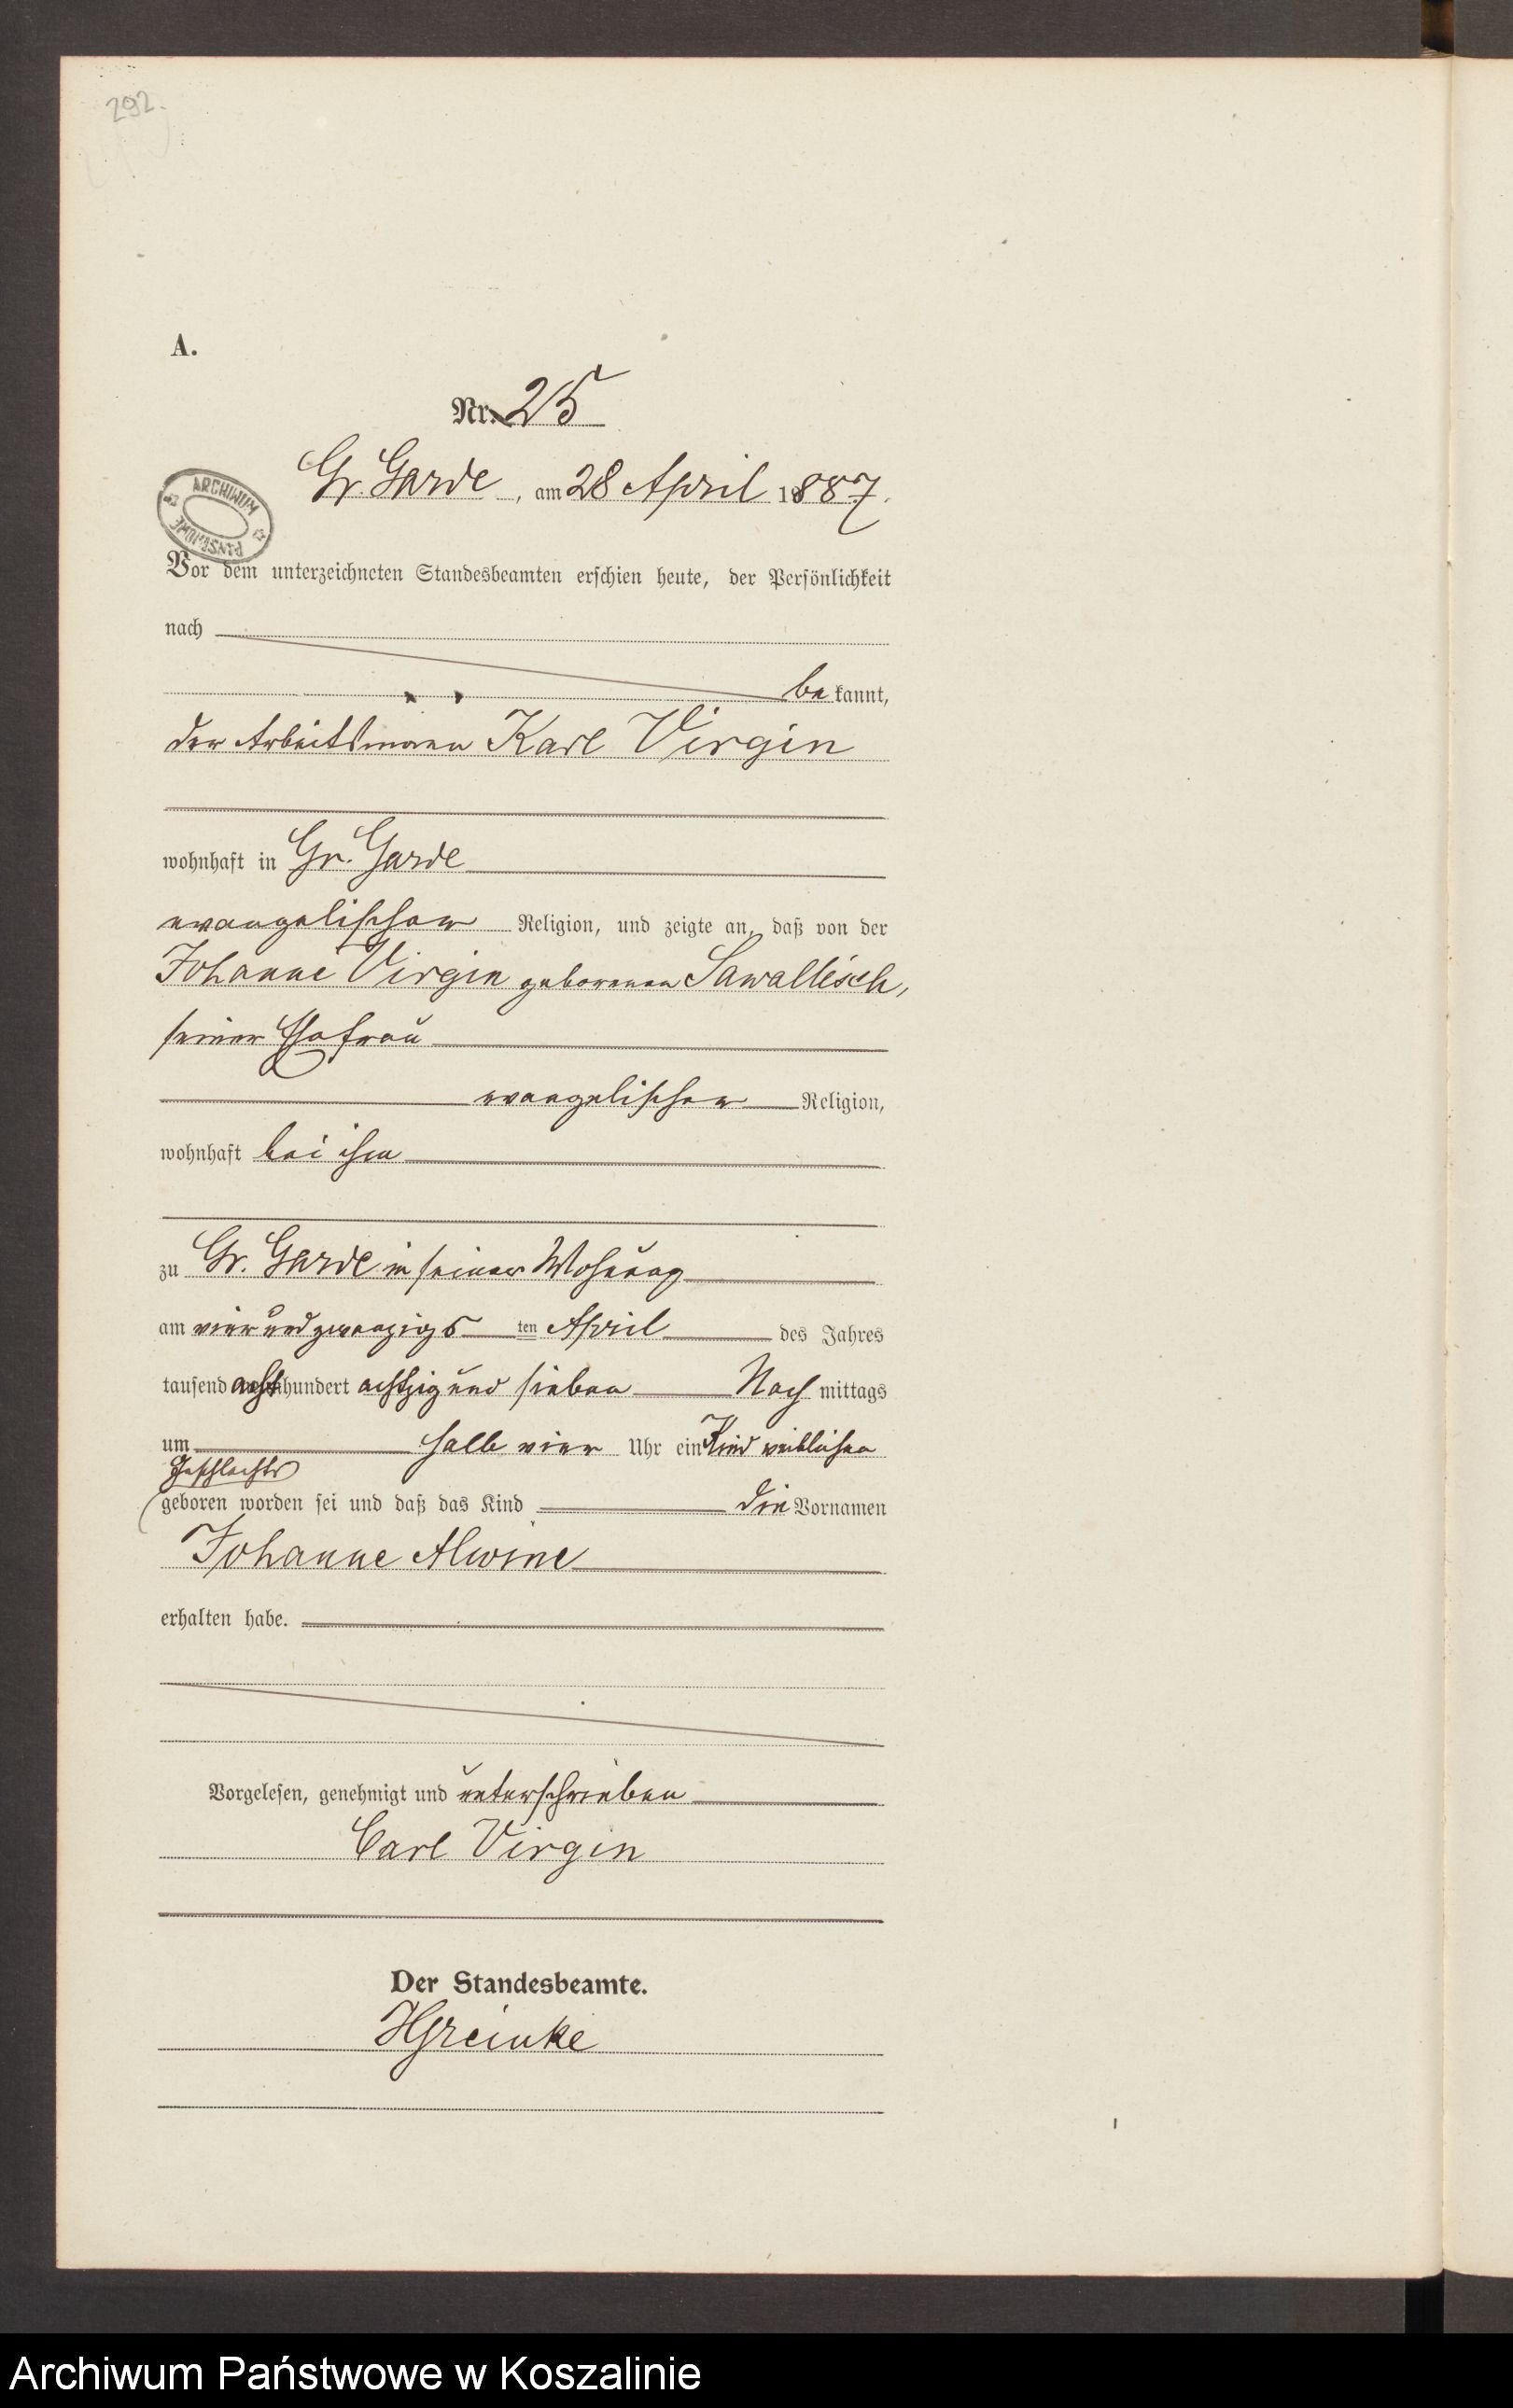 292.
A.
Nr. 25
Gr. Garde, am 28 April 1887.
ARCHIWUM PAŃSTWOWE
Vor dem unterzeichneten Standesbeamten erschien heute, der Persönlichkeit
nach
bekannt,
der Arbeitsmann Karl Virgin
wohnhaft in Gr. Garde
evangelischer Religion, und zeigte an, daß von der
Johanne Virgin geborenen Sawallisch,
seiner Ehefrau
evangelischer Religion,
wohnhaft bei ihm
zu Gr. Garde in seiner Wohnung
am vier und zwanzigsten April des Jahres
tausend acht hundert achtzig und sieben Nach mittags
um halb vier Uhr ein Kind weiblichen
Geschlechts
geboren worden sei und daß das Kind die Vornamen
Johanne Alwine
erhalten habe.
Vorgelesen, genehmigt und unterschrieben
Carl Virgin
Der Standesbeamte.
HGreinke
Archiwum Państwowe w Koszalinie